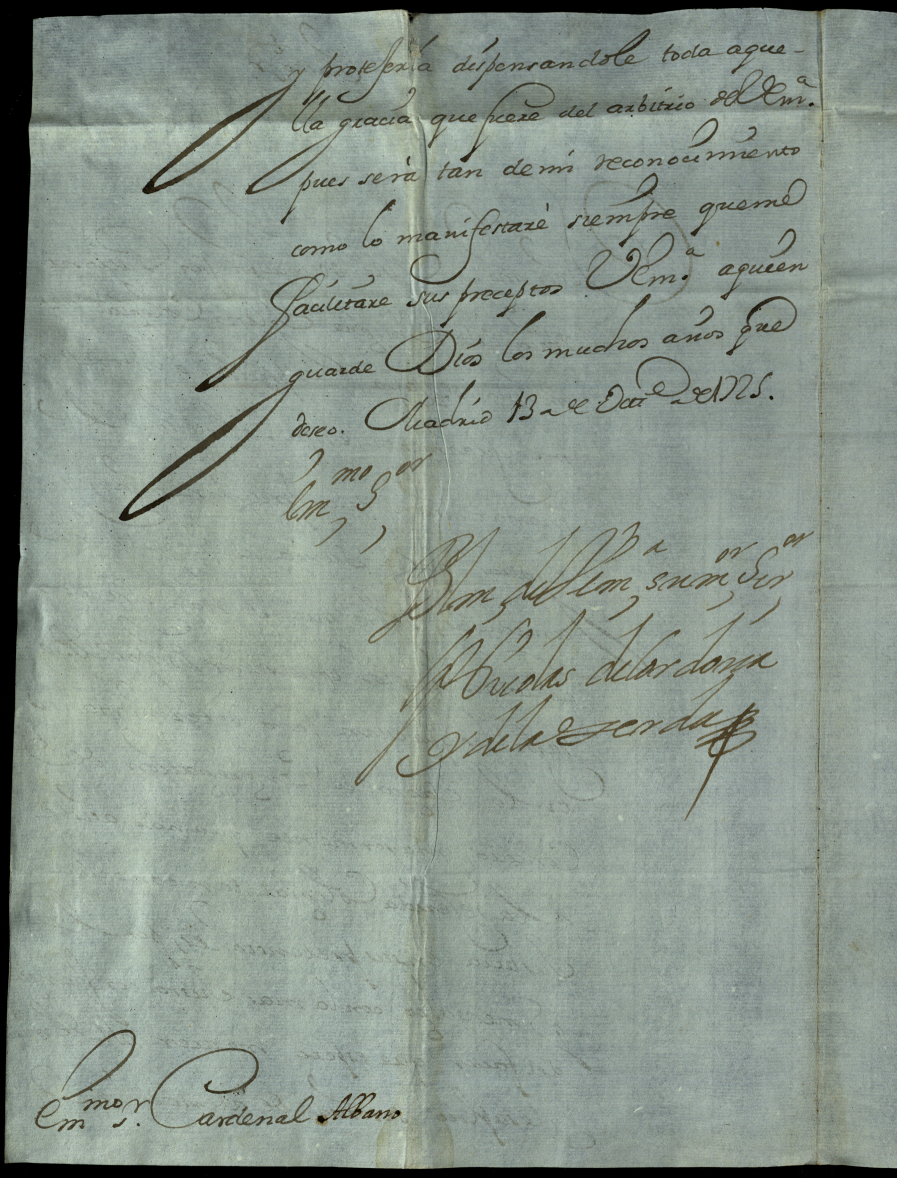 y protesería dispensandole toda aque-
lla gracia que fuere del arbitrio de V Em.ª
pues será tan de mi reconocimiento
como lo manifestaré siempre que me
facilitare sus preceptos V Em.ª a quien
guarde Dios los muchos años que
deseo. Madrid 13 de Octre de 1725.
Em.mo S.or
Blm de V Em.ª su m.or Ser.or
Nicolas de Cordoba
y de la Zerda
Em.mo S.r Cardenal Albano